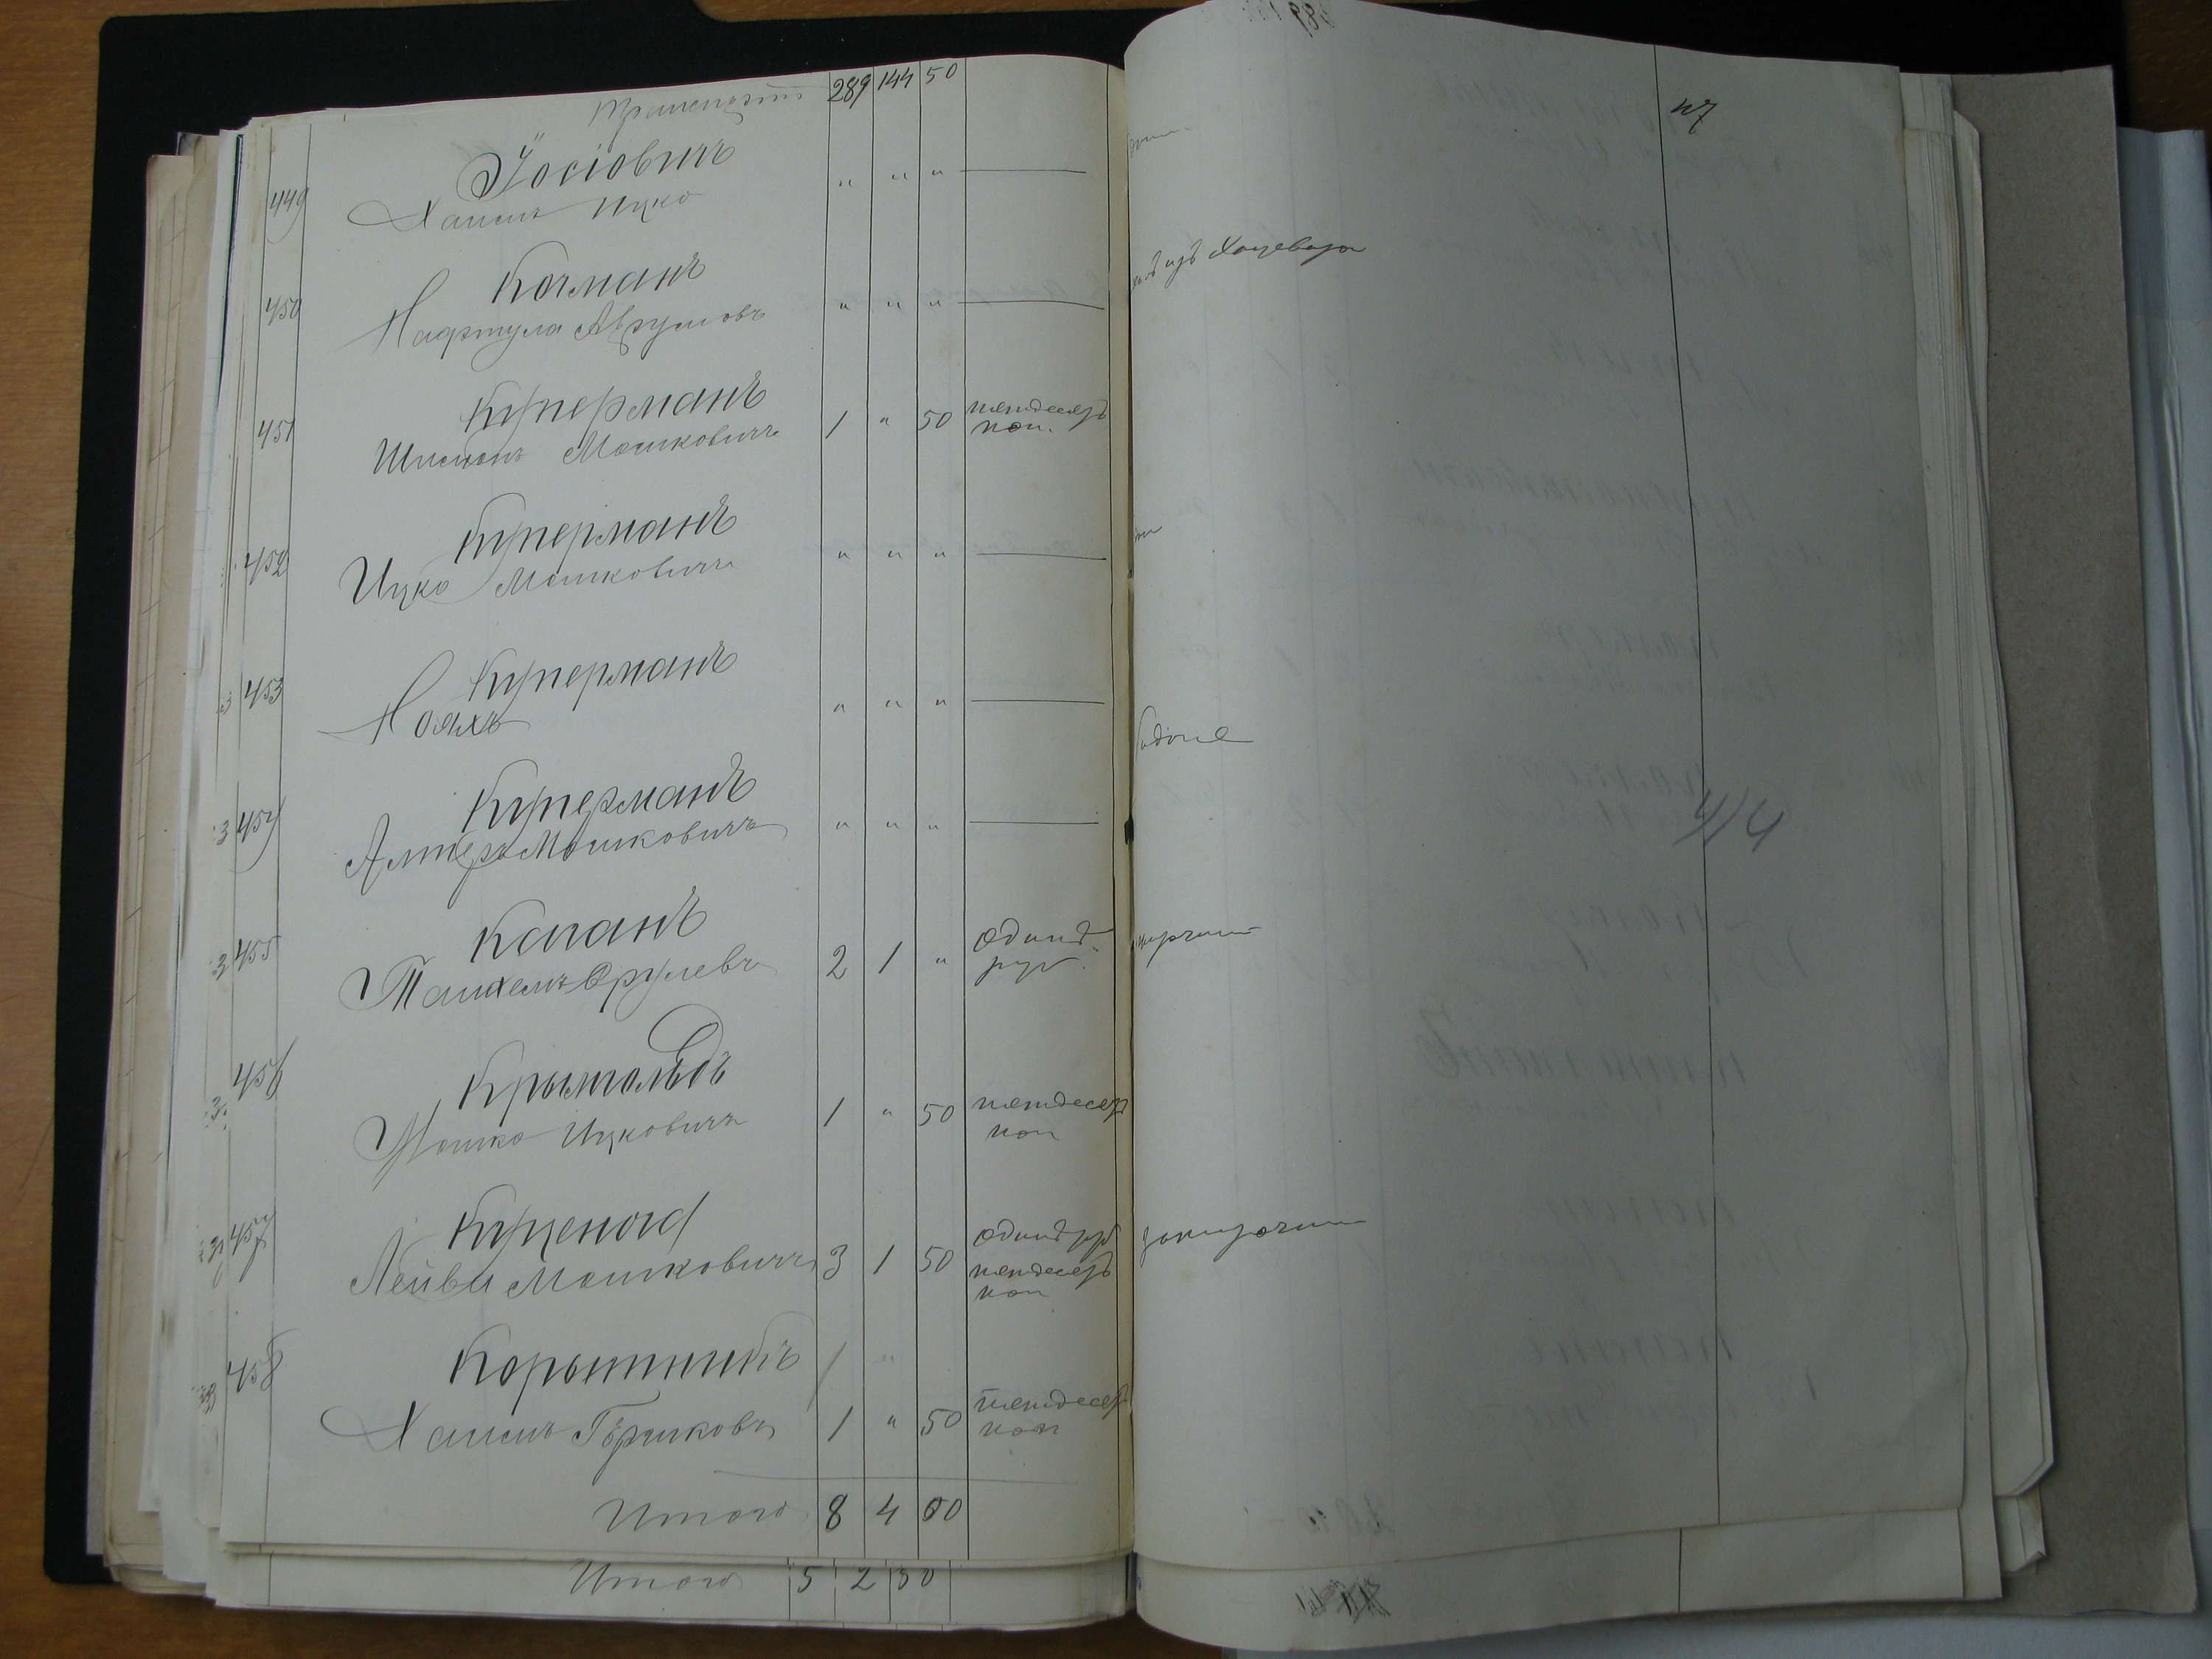 Транспортъ 289 144 50
449 Іосіовичъ " " " —
Хаимъ Ицко
450 Кочманъ " " " —
Нафтула Аврумовъ
451 Куперманъ 1 " 50 пятдесятъ коп.
Шимонъ Мошковичъ
452 Куперманъ " " " —
Ицко Мошковичъ
3 453 Куперманъ " " " —
Нояхъ
3 454 Куперманъ " " " —
Алтеръ Мошковичъ
3 455 Каганъ 2 1 " одинъ руб.
Срулевъ
456 Крымгольдъ 1 " 50 пятдесятъ коп
Мошко Ицковичъ
457 Куценогій 3 1 50 одинъ руб пятдесятъ коп
Лейба Мошковичъ
458 Корытникъ 1 "
Хаимъ Гершковъ 1 " 50 пятдесятъ коп
Итого 8 4 00
Итого 5 2 50
47
изъ
4/4